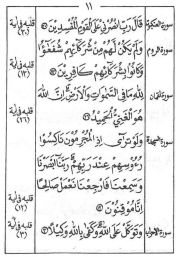 ١١
سورة العنكبوت
قَالَ رَبِّ انصُرْنِي عَلَى الْقَوْمِ الْمُفْسِدِينَ
قلبه في آية (٣٠)
سورة الروم
وَلَمْ يَكُن لَّهُم مِّن شُرَكَائِهِمْ شُفَعَاءُ
وَكَانُوا بِشُرَكَائِهِمْ كَافِرِينَ
قلبه في آية (١٣)
سورة لقمان
لِلَّهِ مَا فِي السَّمَوَاتِ وَالْأَرْضِ إِنَّ اللَّهَ
هُوَ الْغَنِيُّ الْحَمِيدُ
قلبه في آية (٢٦)
سورة السجدة
وَلَوْ تَرَى إِذِ الْمُجْرِمُونَ نَاكِسُوا
رُءُوسِهِمْ عِندَ رَبِّهِمْ رَبَّنَا أَبْصَرْنَا
وَسَمِعْنَا فَارْجِعْنَا نَعْمَلْ صَالِحًا
إِنَّا مُوقِنُونَ
قلبه في آية (١٢)
سورة الأحزاب
وَتَوَكَّلْ عَلَى اللَّهِ وَكَفَى بِاللَّهِ وَكِيلًا
قلبه في آية (٣)